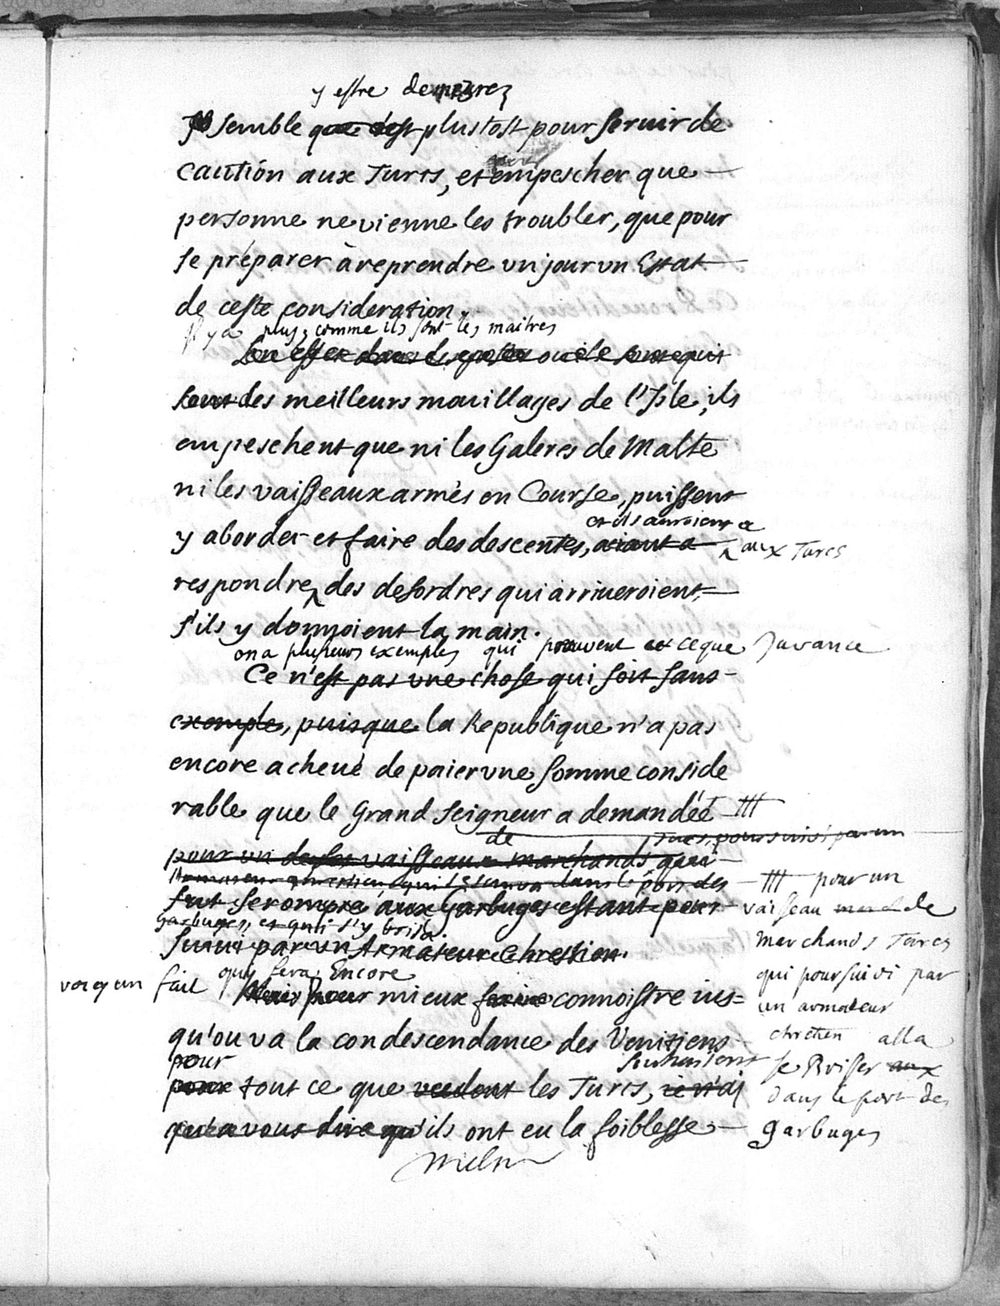 y estre demeurez
semble que c'est plustost pour seruir de
caution aux Turcs, et empescher que
personne ne vienne les troubler, que pour
se préparer à reprendre un jour un Estat
de ceste consideration.
Il y a plus, comme ils sont les maitres
sont des meilleurs mouillages de l'Isle, ils
empeschent que ni les Galeres de Malte
ni les vaisseaux armés en Course, puissent
et ils auroient a
y aborder et faire des descentes, aiant a aux Turcs
respondre des desordres qui arriueroient
s'ils y donnoient la main.
on a plusieurs exemples qui prouvent ce que J'avance
Ce n'est pas une chose qui soit sans
exemple, puisque la Republique n'a pas
encore acheué de paier une somme conside
rable que le Grand Seigneur a demandée
de Turcs, poursuivi par un
pour un de ses vaisseaux marchands qui
fut se rompre aux Garbuges estant pour
Garbuges, et qu'il s'y brisa.
suiui par un Armateur Chrestien.
voicy un fait qui fera Encore
Mais pour mieux faire connoistre ius=
qu'ou va la condescendance des Venitiens
pour souhaitent
pour tout ce que veulent les Turcs, ie n'ai
qu'a vous dire qu'ils ont eu la foiblesse
pour un
vaisseau de
marchands Turcs
qui poursuivi par
un armateur
chretien alla
se Briser aux
dans le port des
Garbuges